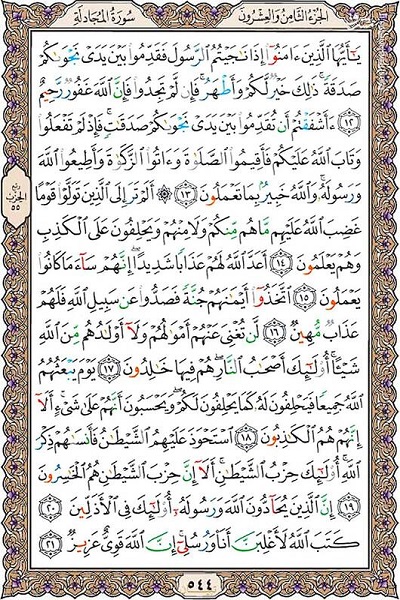 الجزء الثامن والعشرون
سورة المجادلة
يَٰٓأَيُّهَا ٱلَّذِينَ ءَامَنُوٓا۟ إِذَا نَٰجَيْتُمُ ٱلرَّسُولَ فَقَدِّمُوا۟ بَيْنَ يَدَىْ نَجْوَىٰكُمْ
صَدَقَةً ۚ ذَٰلِكَ خَيْرٌ لَّكُمْ وَأَطْهَرُ ۚ فَإِن لَّمْ تَجِدُوا۟ فَإِنَّ ٱللَّهَ غَفُورٌ رَّحِيمٌ
﴿١٢﴾ ءَأَشْفَقْتُمْ أَن تُقَدِّمُوا۟ بَيْنَ يَدَىْ نَجْوَىٰكُمْ صَدَقَٰتٍ ۚ فَإِذْ لَمْ تَفْعَلُوا۟
وَتَابَ ٱللَّهُ عَلَيْكُمْ فَأَقِيمُوا۟ ٱلصَّلَوٰةَ وَءَاتُوا۟ ٱلزَّكَوٰةَ وَأَطِيعُوا۟ ٱللَّهَ
وَرَسُولَهُۥ ۚ وَٱللَّهُ خَبِيرٌۢ بِمَا تَعْمَلُونَ ﴿١٣﴾ ۞ أَلَمْ تَرَ إِلَى ٱلَّذِينَ تَوَلَّوْا۟ قَوْمًا
غَضِبَ ٱللَّهُ عَلَيْهِم مَّا هُم مِّنكُمْ وَلَا مِنْهُمْ وَيَحْلِفُونَ عَلَى ٱلْكَذِبِ
وَهُمْ يَعْلَمُونَ ﴿١٤﴾ أَعَدَّ ٱللَّهُ لَهُمْ عَذَابًا شَدِيدًا ۖ إِنَّهُمْ سَآءَ مَا كَانُوا۟
يَعْمَلُونَ ﴿١٥﴾ ٱتَّخَذُوٓا۟ أَيْمَٰنَهُمْ جُنَّةً فَصَدُّوا۟ عَن سَبِيلِ ٱللَّهِ فَلَهُمْ
عَذَابٌ مُّهِينٌ ﴿١٦﴾ لَّن تُغْنِىَ عَنْهُمْ أَمْوَٰلُهُمْ وَلَآ أَوْلَٰدُهُم مِّنَ ٱللَّهِ
شَيْـًٔا ۚ أُو۟لَٰٓئِكَ أَصْحَٰبُ ٱلنَّارِ ۖ هُمْ فِيهَا خَٰلِدُونَ ﴿١٧﴾ يَوْمَ يَبْعَثُهُمُ
ٱللَّهُ جَمِيعًا فَيَحْلِفُونَ لَهُۥ كَمَا يَحْلِفُونَ لَكُمْ ۖ وَيَحْسَبُونَ أَنَّهُمْ عَلَىٰ شَىْءٍ ۚ أَلَآ
إِنَّهُمْ هُمُ ٱلْكَٰذِبُونَ ﴿١٨﴾ ٱسْتَحْوَذَ عَلَيْهِمُ ٱلشَّيْطَٰنُ فَأَنسَىٰهُمْ ذِكْرَ
ٱللَّهِ ۚ أُو۟لَٰٓئِكَ حِزْبُ ٱلشَّيْطَٰنِ ۚ أَلَآ إِنَّ حِزْبَ ٱلشَّيْطَٰنِ هُمُ ٱلْخَٰسِرُونَ
﴿١٩﴾ إِنَّ ٱلَّذِينَ يُحَآدُّونَ ٱللَّهَ وَرَسُولَهُۥٓ أُو۟لَٰٓئِكَ فِى ٱلْأَذَلِّينَ ﴿٢٠﴾
كَتَبَ ٱللَّهُ لَأَغْلِبَنَّ أَنَا۠ وَرُسُلِىٓ ۚ إِنَّ ٱللَّهَ قَوِىٌّ عَزِيزٌ ﴿٢١﴾
ربع
الحزب
٥٥
٥٤٤